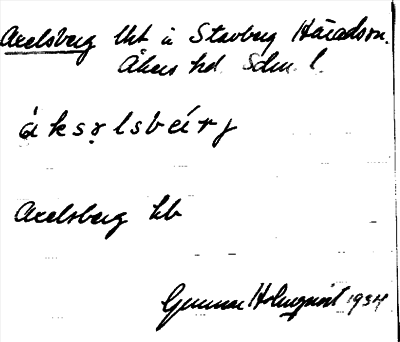 Axelsberg lht i Stavberg Häradsm.
Åkers hd. Sdm. l.
àksǝ̣lsbéirj
Axelsberg hb
Gunnar Holmqvist 1934